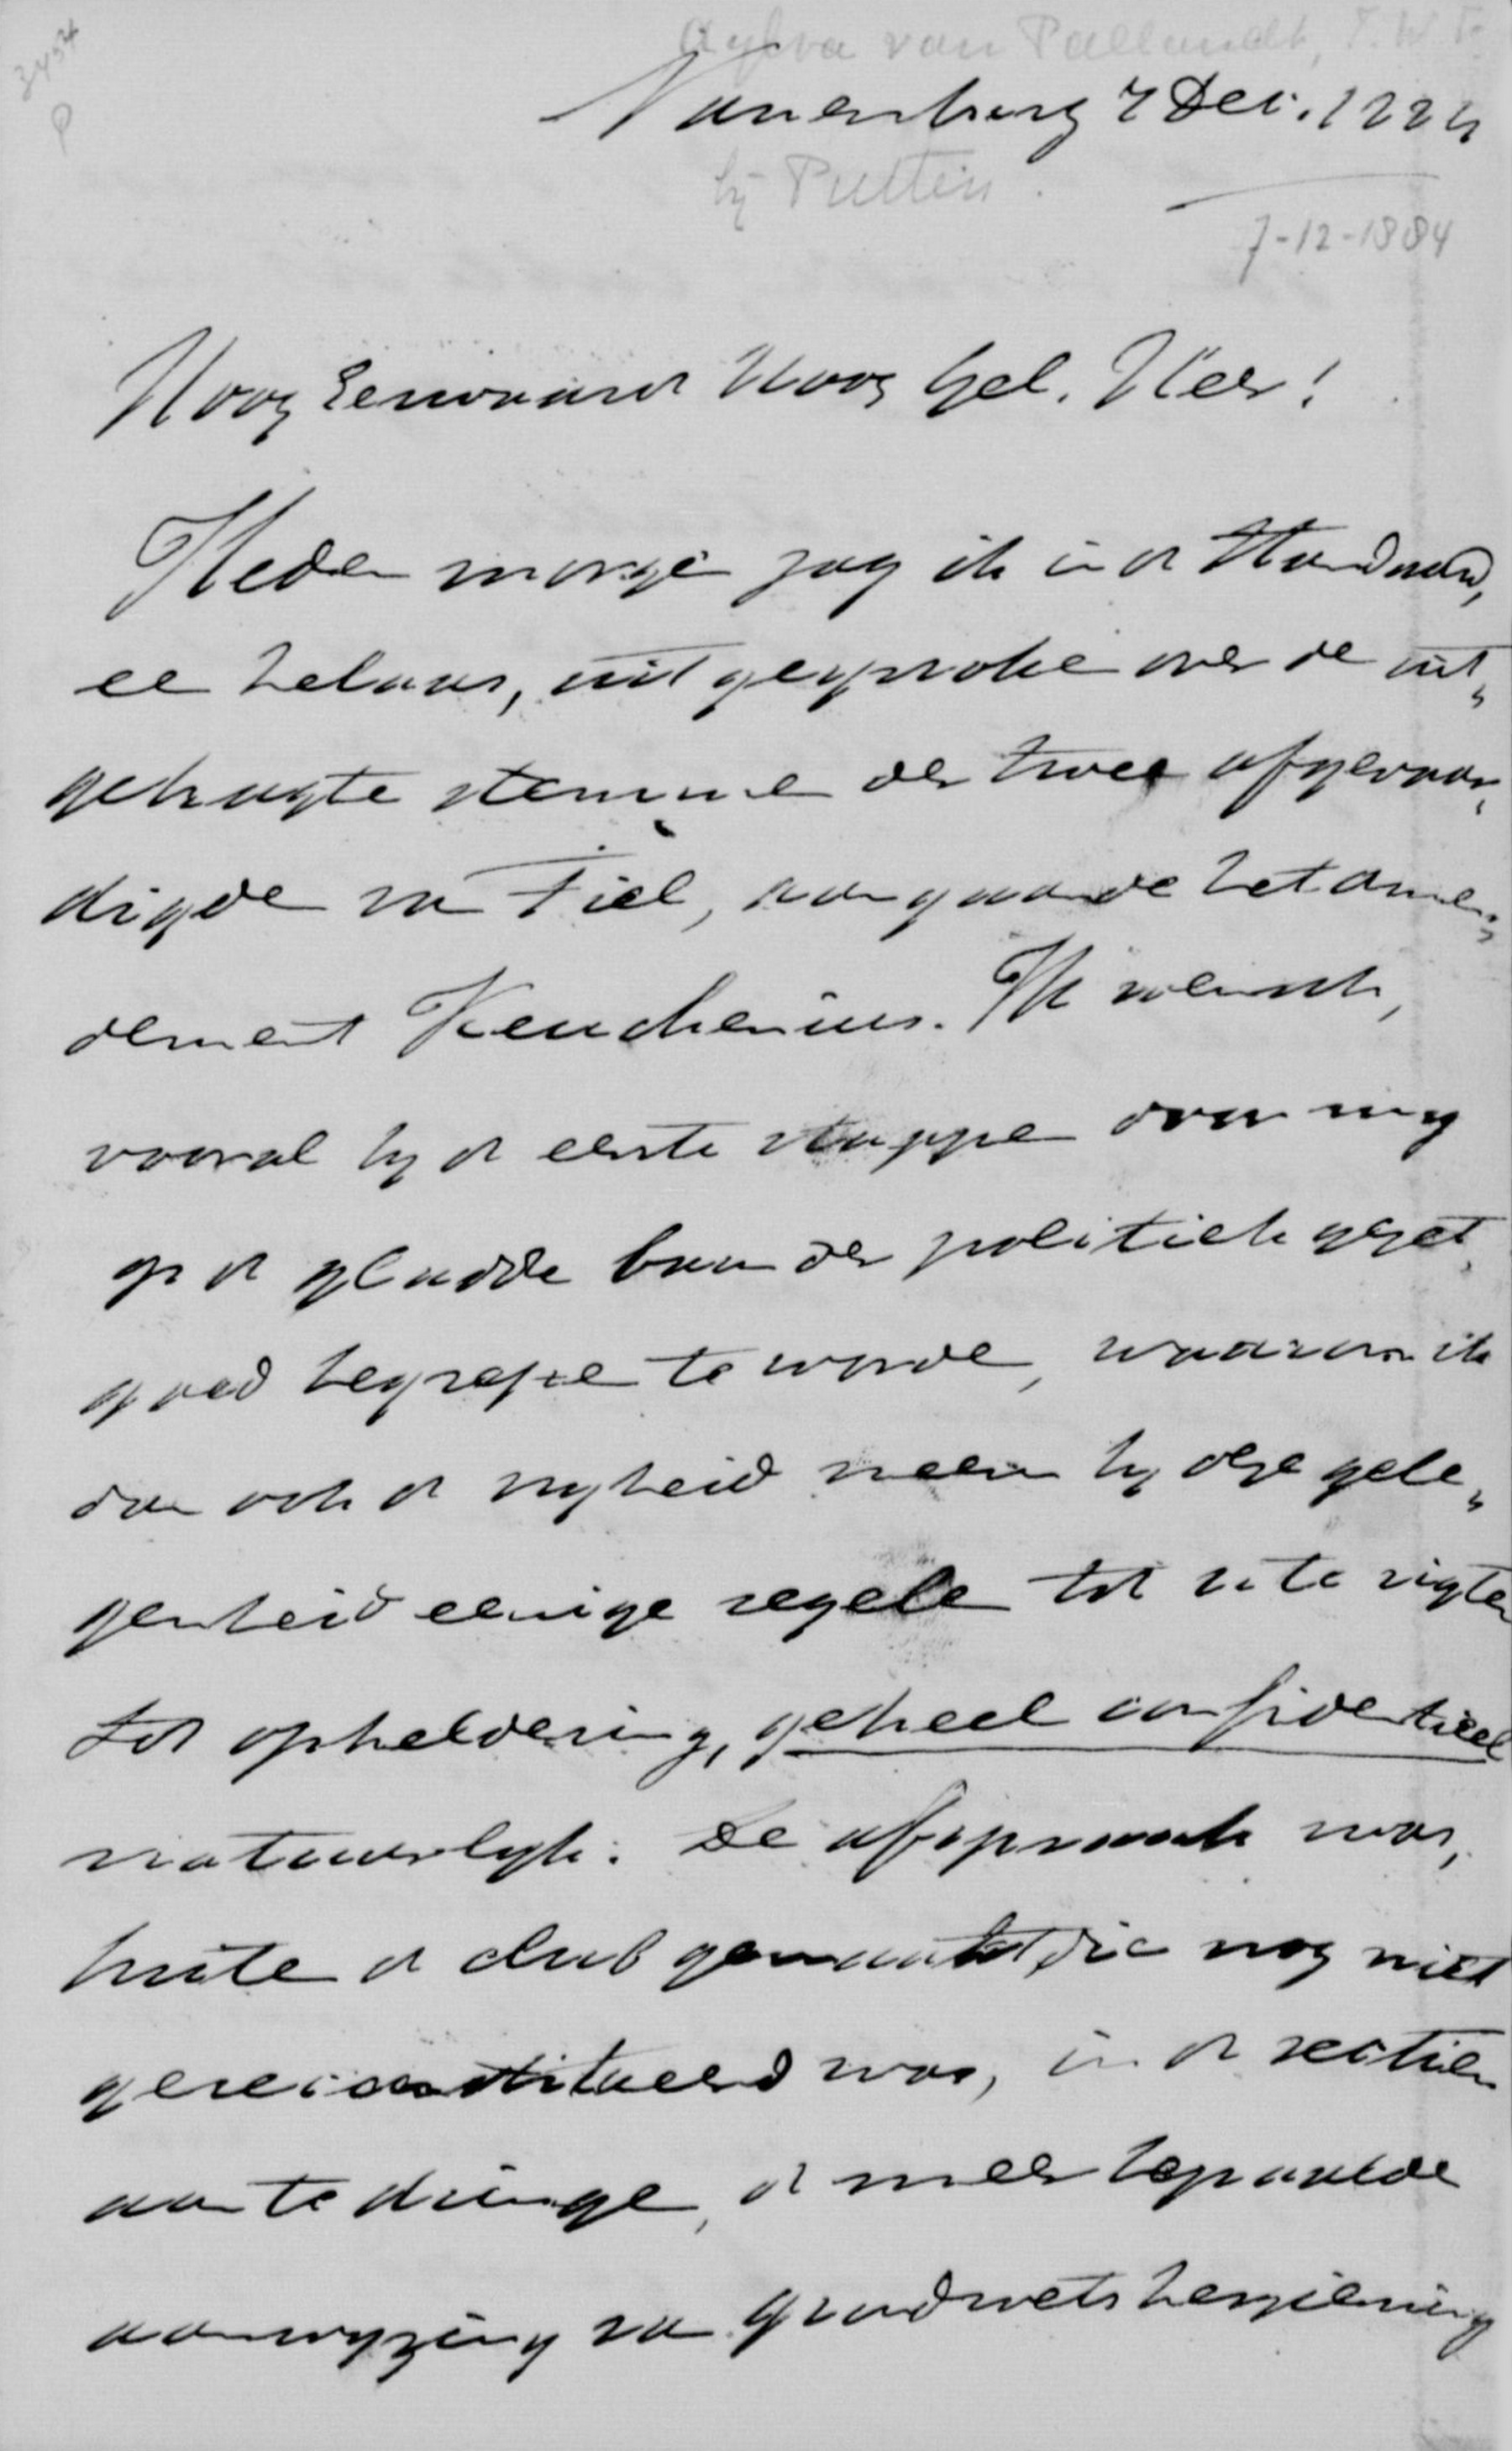 3454
P
Aylva van Pallandt, F. W.
Vanenburg 7 Dec. 1884
bij Putten.
7-12-1884
Hoog Eerwaard Hoog Gel. Heer!
Heden morgen zag ik in de Standaard,
een helaas, uitgesproken over de uit„
gebragte stemmen der twee afgevaar„
digden van Tiel, aangaande het amen„
dement Keuchenius. Ik wensch,
vooral bij de eerste stappen door mij
op de gladde baan der politiek gezet
goed begrepen te worden, waarom ik
dan ook de vrijheid neem bij deze gele„
genheid eenige regelen tot U te rigten
tot opheldering, geheel confidentieel
natuurlijk. De afspraak was,
buiten de club gemaakt, die nog niet
gereconstitueerd was, in de sectien
aan te dringen, de meer bepaalde
aanwijzing van grondwetsherziening